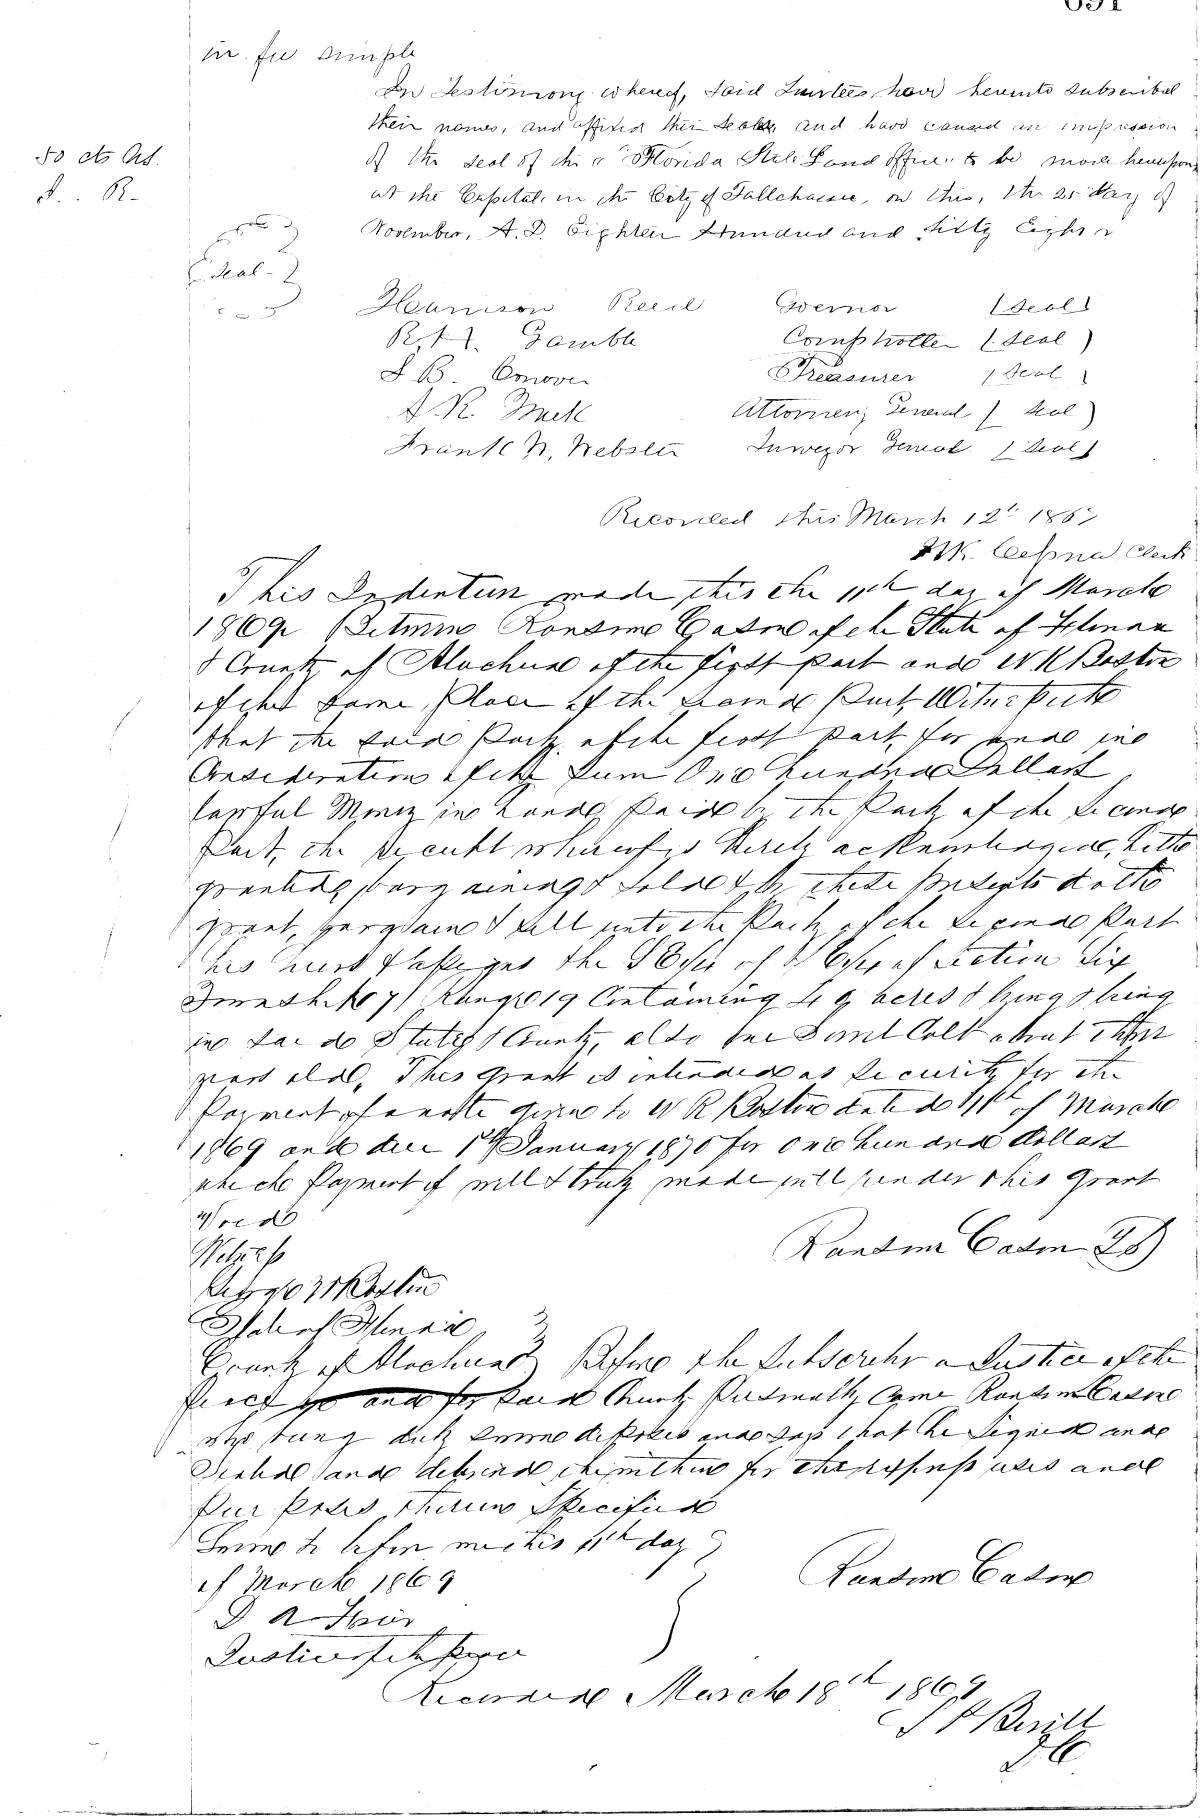 691
in fee simple
In Testimony whereof, said Trustees have hereunto subscribed
their names, and affixed their seals, and have caused an impression
of the seal of the "Florida State Land office" to be made hereupon
50 cts
I. R.
at the Capital, in the City of Tallahassee, on this, the 25th day of
November, A.D. Eighteen Hundred and Sixty Eight
(Seal)
Harrison Reed Governor (Seal)
R. H. Gamble Comptroller (Seal)
S B. Conover Treasurer (Seal)
A. R. Meek Attorney General (Seal)
Frank W. Webster Surveyor General (Seal)
Recorded this March 12th 1869
Cessna Clerk
This Indenture made this the 11th day of March
1869 Between Ransome Cason of the State of
& County of Alachua of the first part and W R Bostic
of the same Place of the second Part, Witnesseth
that the said Party of the first part, for and in
Consideration of the sum One hundred Dollars
lawful Money in hand Paid by the Party of the Second
Part, the receipt whereof is hereby acknowledged, hath
granted, bargained & sold & by these presents doth
grant, bargain & sell unto the Party of the Second Part
his heirs & assigns the of Section Six
Township 7 Range 19 Containing acres & lying & being
in said State & County, also one Sorrel Colt about three
years old, This grant is intended as Security for the
Payment of a note given to W R Bostic dated 11th of March
1869 and due 1st January 1870 for One hundred dollars
which Payment if well & truly made will render this grant
Void
Witness Ransom Cason LS)
George W Bostic
State of Florida
County of Alachua Before the Subscriber a Justice of the
Peace and for said County Personally Came Ransom Cason
who being duly sworn deposes and says that he Signed and
Sealed and delivered the within for the express uses and
Purposes therein Specified
Sworn to before me this 11th day
of March 1869 Ransome Cason
D A
Justice of the Peace
Recorded March 18th 1869
S P Bevill
DC